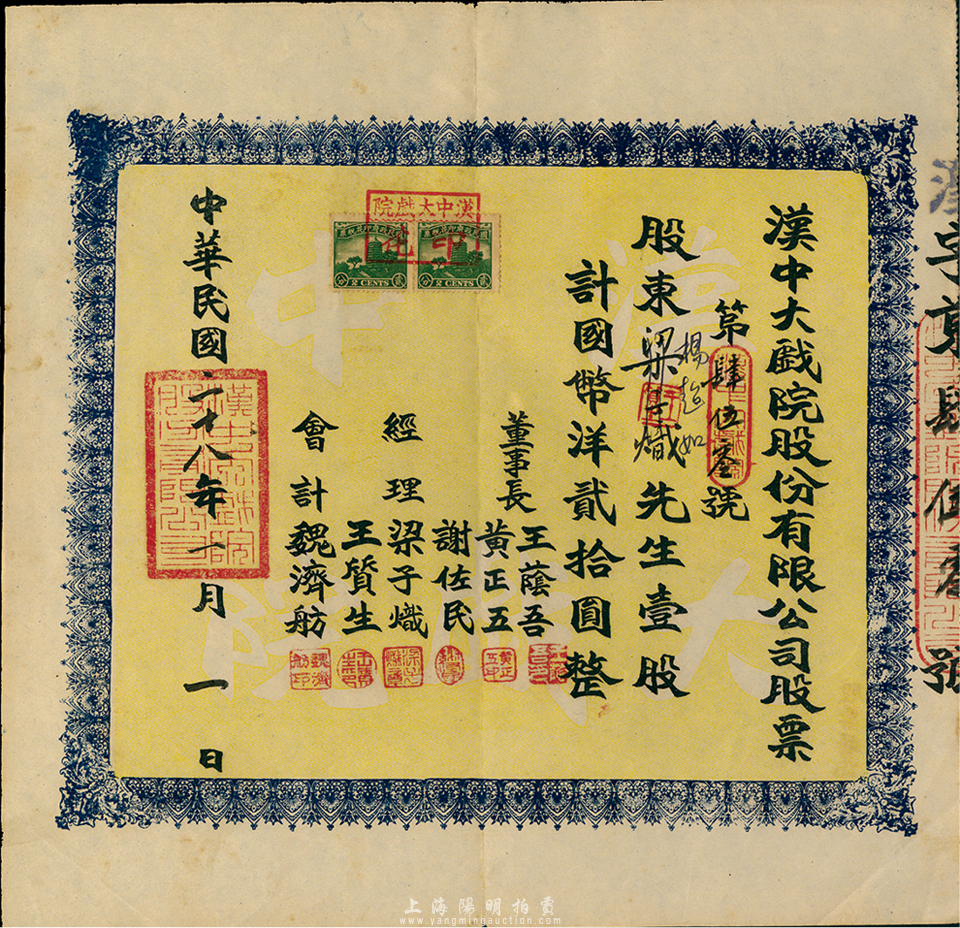 漢中大戲院股份有限公司股票
第肆伍叁號
股東梁子熾先生壹股
楊
如
計國幣洋貳拾圓整
董事長
王蔭吾
黃正五
謝佐民
經理
梁子熾
王質生
會計
魏濟舫
中華民國二十八年十一月一日
漢中大戲院
印花
2 CENTS
2 CENTS
漢中
大戲院
肆伍叁號
上海陽明拍賣
www.yangmingauction.com